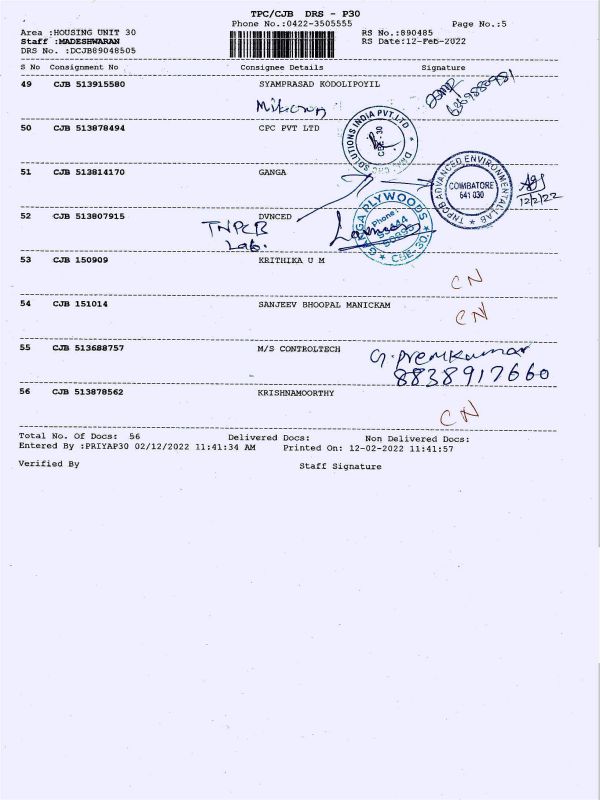 TPC/CJB DRS - P30
Phone No.:0422-3505555 Page No.:5
Area :HOUSING UNIT 30 RS No.:890485
Staff :MADESHWARAN RS Date:12-Feb-2022
DRS No. :DCJB89048505
S No Consignment No Consignee Details Signature
49 CJB 513915580 SYAMPRASAD KODOLIPOYIL
50 CJB 513878494 CPC PVT LTD
SOLUTIONS INDIA PVT.LTD
CBE - 30
51 CJB 513814170 GANGA
TNPCB ADVANCED ENVIRONMENTAL LAB
COIMBATORE
641 030
12/2/22
52 CJB 513807915 DVNCED
TNPCB
Lab.
GANGA PLYWOODS
Phone:
CBE-30
53 CJB 150909 KRITHIKA U M
CN
54 CJB 151014 SANJEEV BHOOPAL MANICKAM
CN
55 CJB 513688757 M/S CONTROLTECH G.Premkumar
8838917660
56 CJB 513878562 KRISHNAMOORTHY
CN
Total No. Of Docs: 56 Delivered Docs: Non Delivered Docs:
Entered By :PRIYAP30 02/12/2022 11:41:34 AM Printed On: 12-02-2022 11:41:57
Verified By Staff Signature